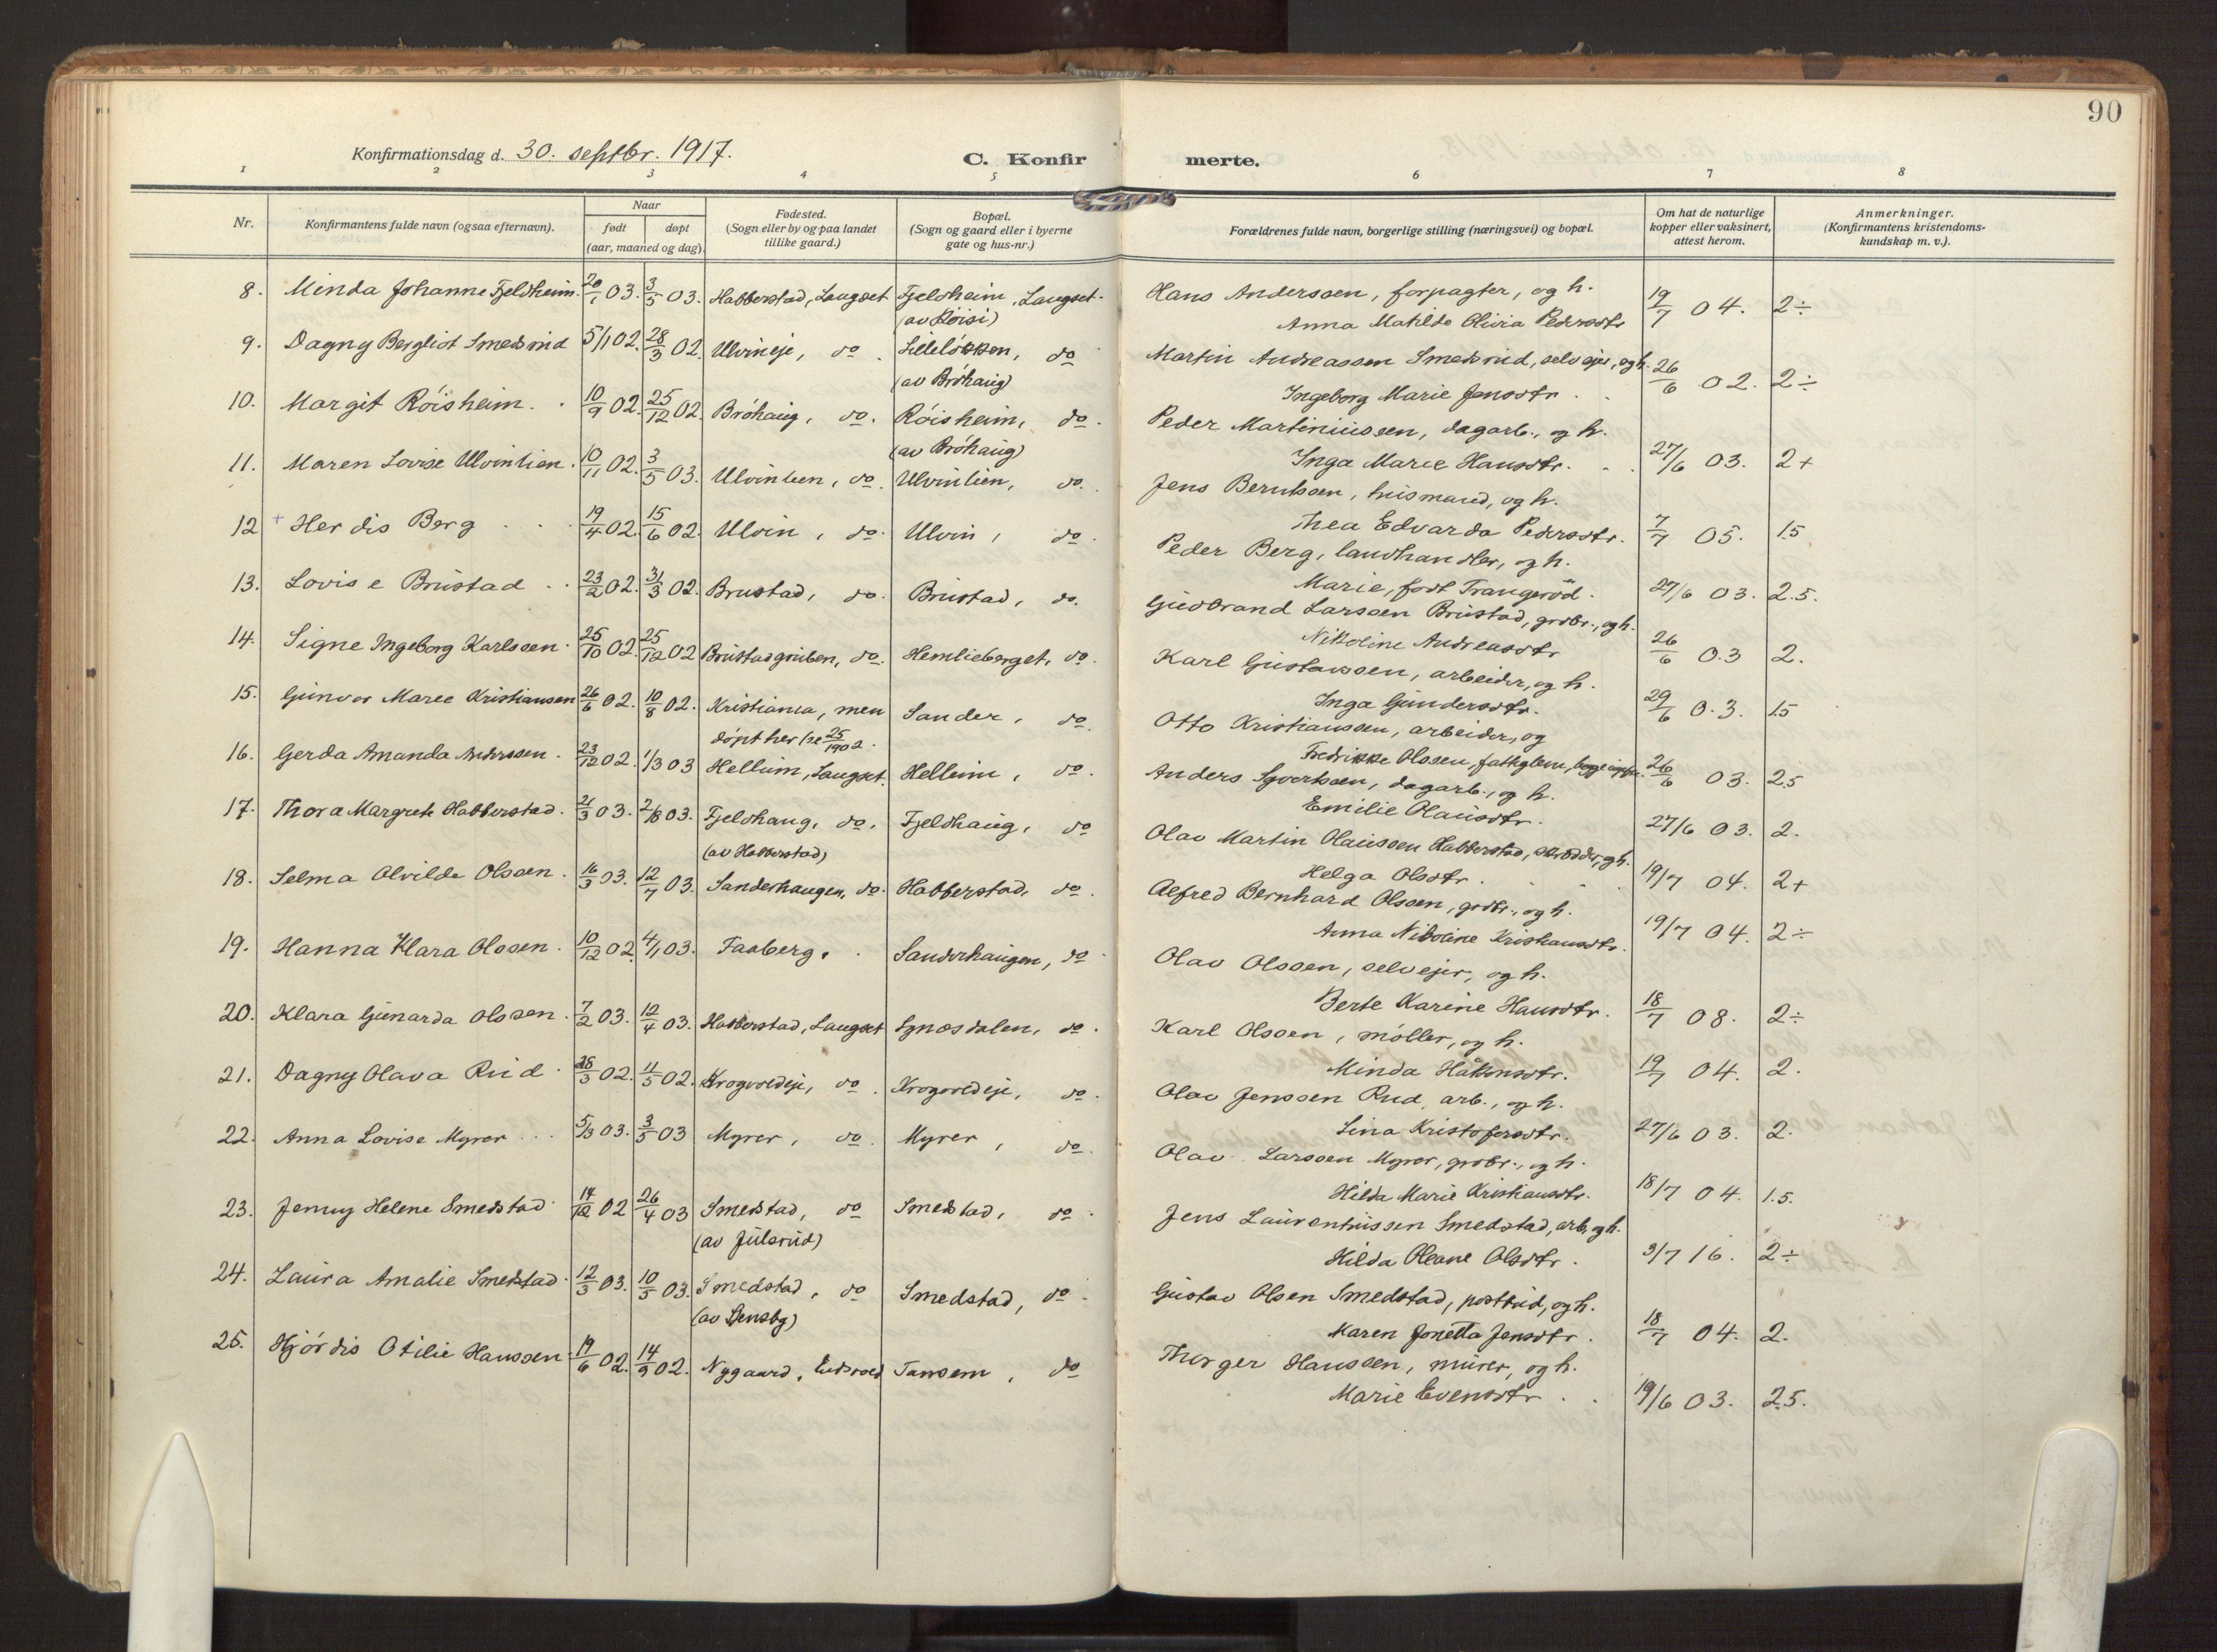 90
Konfirmationsdag d. 30. septbr. 1917.
C. Konfirmerte.
1 2 3 4 5 6 7 8
Nr.
Konfirmantens fulde navn (ogsaa efternavn).
Naar
født døpt
(aar, maaned og dag).
Fødested.
(Sogn eller by og paa landet
tillike gaard.)
Bopæl.
(Sogn og gaard eller i byerne
gate og hus-nr.)
Forældrenes fulde navn, borgerlige stilling (næringsvei) og bopæl.
Om hat de naturlige
kopper eller vaksinert,
attest herom.
Anmerkninger.
(Konfirmantens kristendoms-
kundskap m. v.).
8. Minda Johanne Fjeldheim. 20/1 03. 3/5 03. Habberstad, Langset Fjeldheim, Langset. Hans Anderssen, forpagter, og h.
(av Röisi) Anna Matilde Olivia Pedersdtr 19/7 04. 2÷
9. Dagny Bergliot Smedsrud 5/1 02. 28/3 02. Ulvineje, do. Lillelökken, do Martin Andreassen Smedsrud, selvejer, og h.
(av Bröhaug) Ingeborg Marie Jensdtr. 26/6 02. 2÷
10. Margit Röisheim. 10/9 02. 25/12 02. Bröhaug, do. Röisheim, do. Peder Martiniussen, dagarb., og h.
(av Bröhaug) Inga Marie Hansdtr. 27/6 03. 2+
11. Maren Lovise Ulvinlien. 10/11 02. 3/5 03. Ulvinlien, do. Ulvinlien, do. Jens Berntsen, husmand, og h.
Thea Edvarda Pedersdtr. 7/7 05. 1.5
12 + Herdis Berg 19/4 02. 15/6 02. Ulvin, do. Ulvin, do. Peder Berg, landhandler, og h.
Marie, født Trangeröd. 27/6 03. 2.5.
13. Lovise Brustad 23/2 02. 31/3 02. Brustad, do. Brustad, do. Gudbrand Larssen Brustad, grdbr., og h.
Nikoline Andreasdtr 26/6 03 2.
14. Signe Ingeborg Karlssen. 25/10 02. 25/12 02 Brustadgruben, do. Hemlieberget, do. Karl Gustavssen, arbeider, og h.
Inga Gundersdtr. 29/6 03. 1.5
15. Gunvor Marie Kristiansen 26/6 02. 10/8 02. Kristiania, men Sander, do. Otto Kristianssen, arbeider, og
döpt her 25/1902. Fredrikke Olssen, 26/6 03. 2.5
16. Gerda Amanda Anderssen. 23/12 02. 1/3 03 Hellum, Langset. Hellum, do. Anders Syvertsen, dagarb., og h.
Emilie Olausdtr. 27/6 03. 2.
17. Thora Margrete Habberstad. 21/3 03. 2/8 03. Fjeldhaug, do. Fjeldhaug, do Olav Martin Olaussen Habberstad, skrædder, og h.
(av Habberstad) Helga Olsdtr. 19/7 04. 2+
18. Selma Alvilde Olssen. 16/3 03. 12/7 03. Sanderhaugen, do. Habberstad, do. Alfred Bernhard Olssen, grdbr., og h.
Anna Nikoline Kristiansdtr. 19/7 04. 2÷
19. Hanna Klara Olssen. 10/12 02. 4/1 03. Faaberg. Sanderhaugen, do Olav Olssen, selvejer, og h.
Berte Karine Hansdtr. 18/7 08. 2÷
20. Klara Gunarda Olssen. 7/2 03. 12/4 03. Habberstad, Langset Synæsdalen, do. Karl Olssen, möller, og h.
Minda Håkensdtr. 19/7 04. 2.
21. Dagny Olava Rud. 28/3 02. 11/5 02. Krogvoldeje, do. Krogvoldeje, do. Olav Jenssen Rud, arb., og h.
Lina Kristofersdtr. 27/6 03. 2.
22. Anna Lovise Myrer 5/3 03. 3/5 03 Myrer, do. Myrer, do. Olav Larssen Myrer, grdbr., og h.
Hilda Marie Kristiansdtr. 18/7 04. 1.5.
23. Jenny Helene Smedstad 14/12 02 26/4 03 Smedstad, do Smedstad, do. Jens Laurentiussen Smedstad, arb, og h.
(av Julsrud) Hilda Oleane Olsdtr. 3/7 16. 2÷
24. Laura Amalie Smedstad. 12/3 03. 10/5 03. Smedstad, do Smedstad, do. Gustav Olsen Smedstad, postbud, og h.
(av Stensbg) Karen Jonetta Jensdtr. 18/7 04. 2.
25. Hjördis Otilie Hanssen. 19/6 02. 14/9 02. Nygaard, Eidsvold Tansem, do Thorger Hanssen, murer, og h.
Marie Evensdtr. 19/6 03. 2.5.